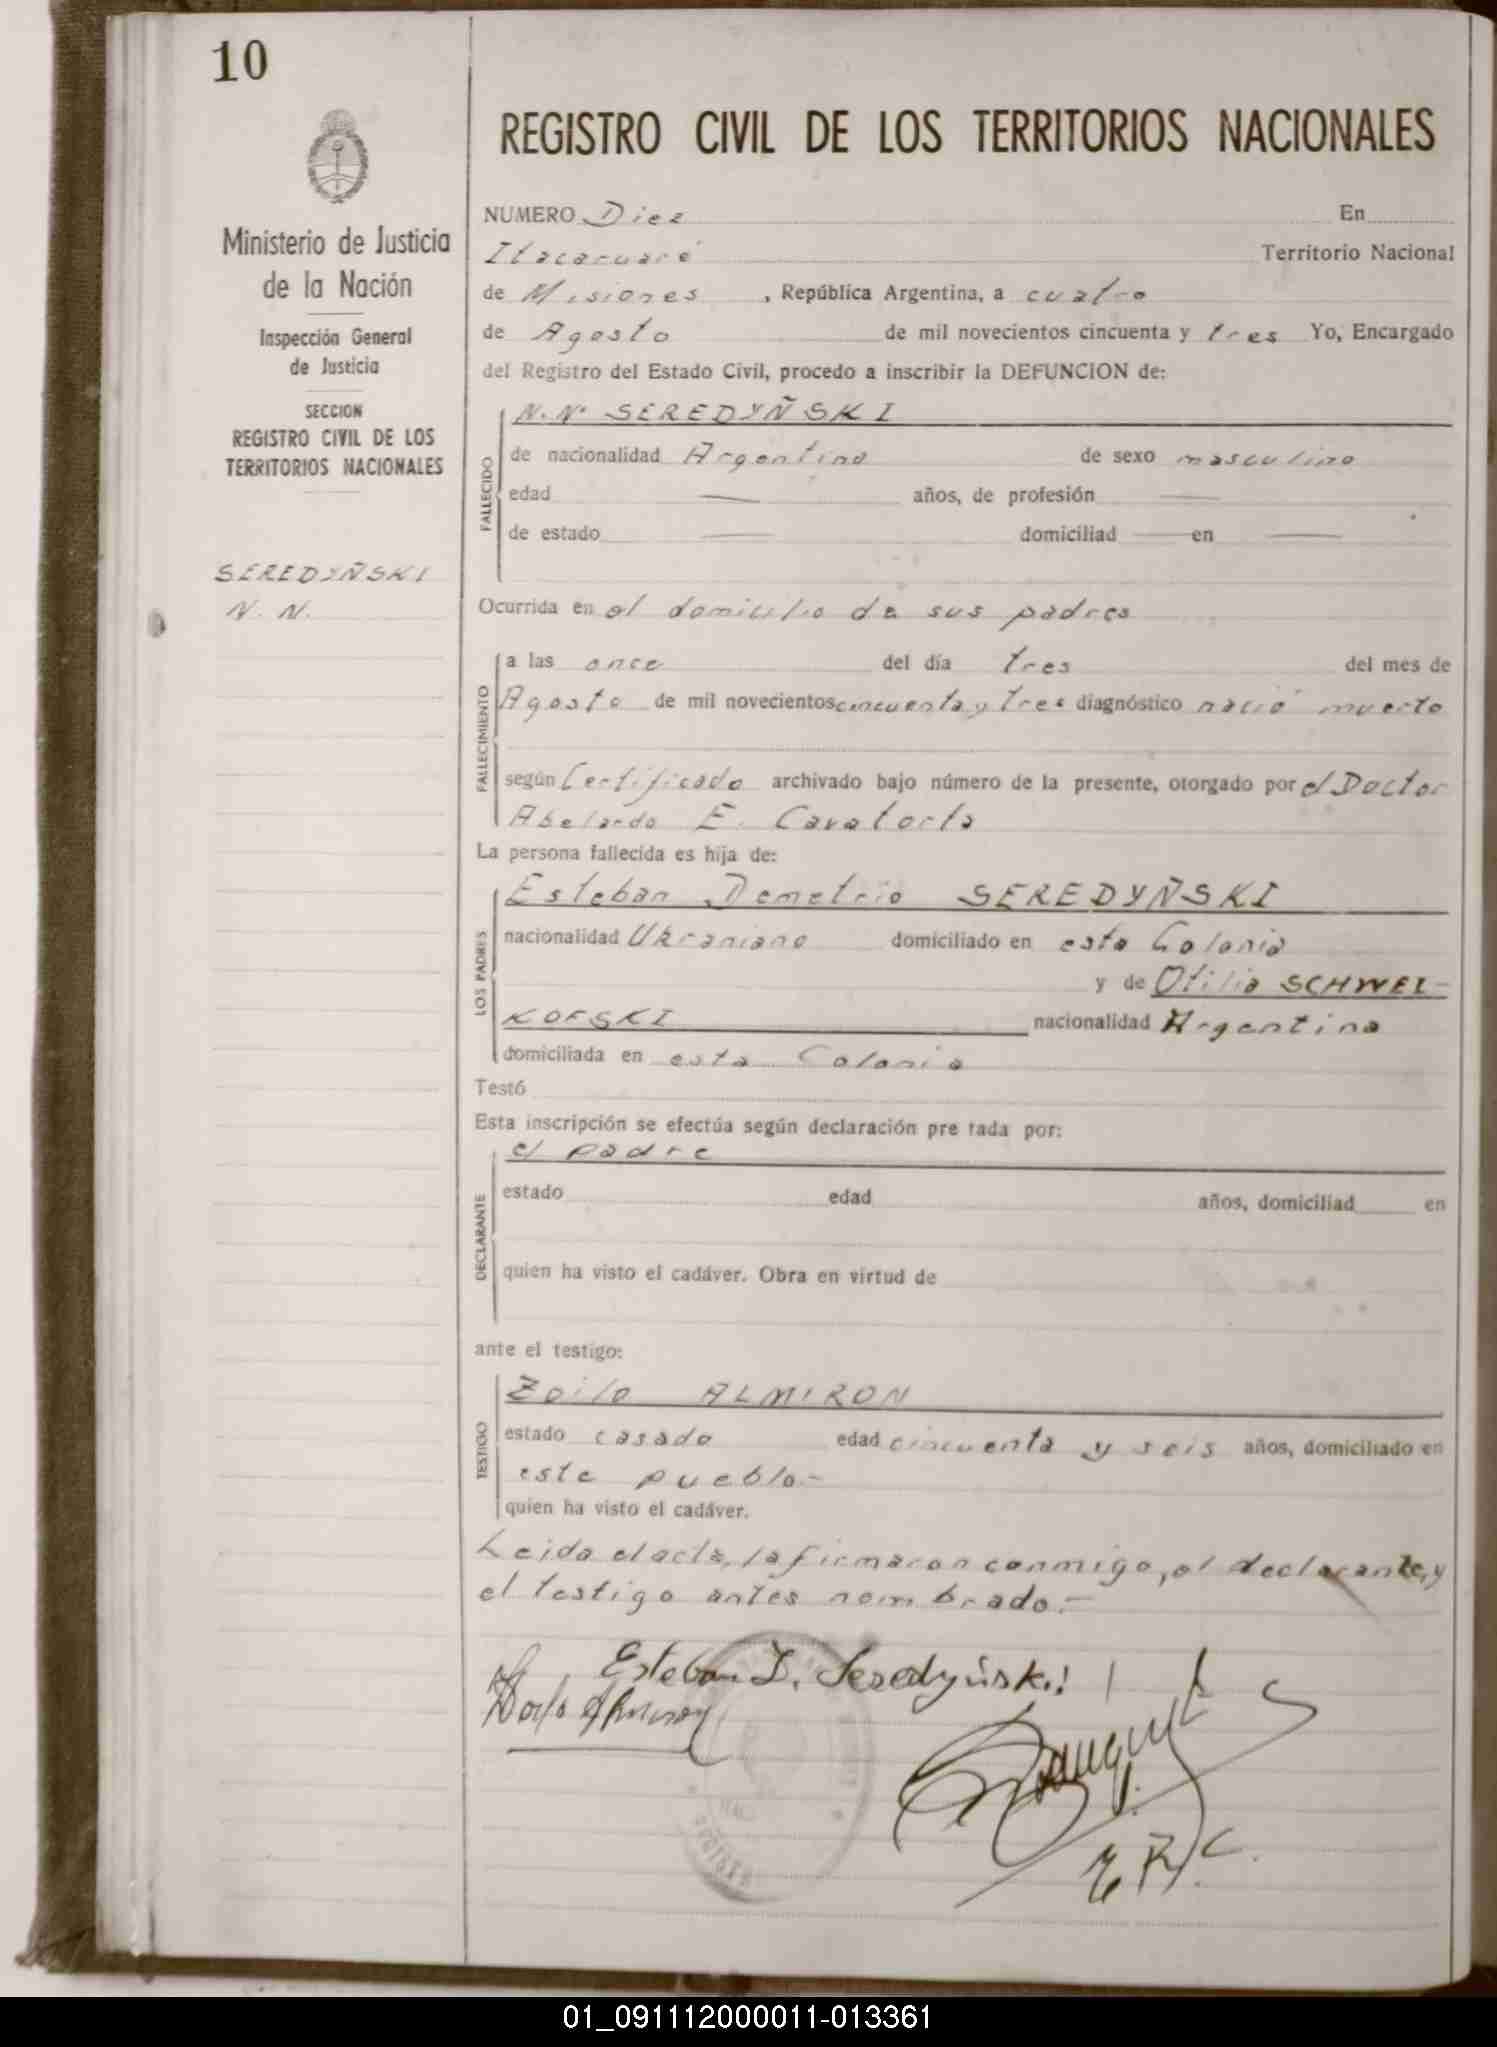 10
Ministerio de Justicia
de la Nación
Inspección General
de Justicia
SECCION
REGISTRO CIVIL DE LOS
TERRITORIOS NACIONALES
SEREDYÑSKI
N. N.
REGISTRO CIVIL DE LOS TERRITORIOS NACIONALES
NUMERO Diez En
Itacaruaré Territorio Nacional
de Misiones , República Argentina, a cuatro
de Agosto de mil novecientos cincuenta y tres Yo, Encargado
del Registro del Estado Civil, procedo a inscribir la DEFUNCION de:
FALLECIDO
N. N. SEREDYÑSKI
de nacionalidad Argentina de sexo masculino
edad — años, de profesión —
de estado — domiciliad — en —
Ocurrida en el domicilio de sus padres
FALLECIMIENTO
a las once del día tres del mes de
Agosto de mil novecientos cincuenta y tres diagnóstico nació muerto
según Certificado archivado bajo número de la presente, otorgado por el Doctor
Abelardo E. Cavatorta
La persona fallecida es hija de:
LOS PADRES
Esteban Demetrio SEREDYÑSKI
nacionalidad Ukraniano domiciliado en esta Colonia
y de Otilia SCHWEI-
KOFSKI nacionalidad Argentina
domiciliada en esta Colonia
Testó
Esta inscripción se efectúa según declaración pre tada por:
DECLARANTE
el padre
estado edad años, domiciliad en
quien ha visto el cadáver. Obra en virtud de
ante el testigo:
TESTIGO
Zoilo ALMIRON
estado casado edad cincuenta y seis años, domiciliado en
este pueblo.-
quien ha visto el cadáver.
Leida el acta, la firmaron conmigo, el declarante, y
el testigo antes nombrado.-
Esteban D. Seredyński
Zoilo Almiron
E. R. C.
01_091112000011-013361